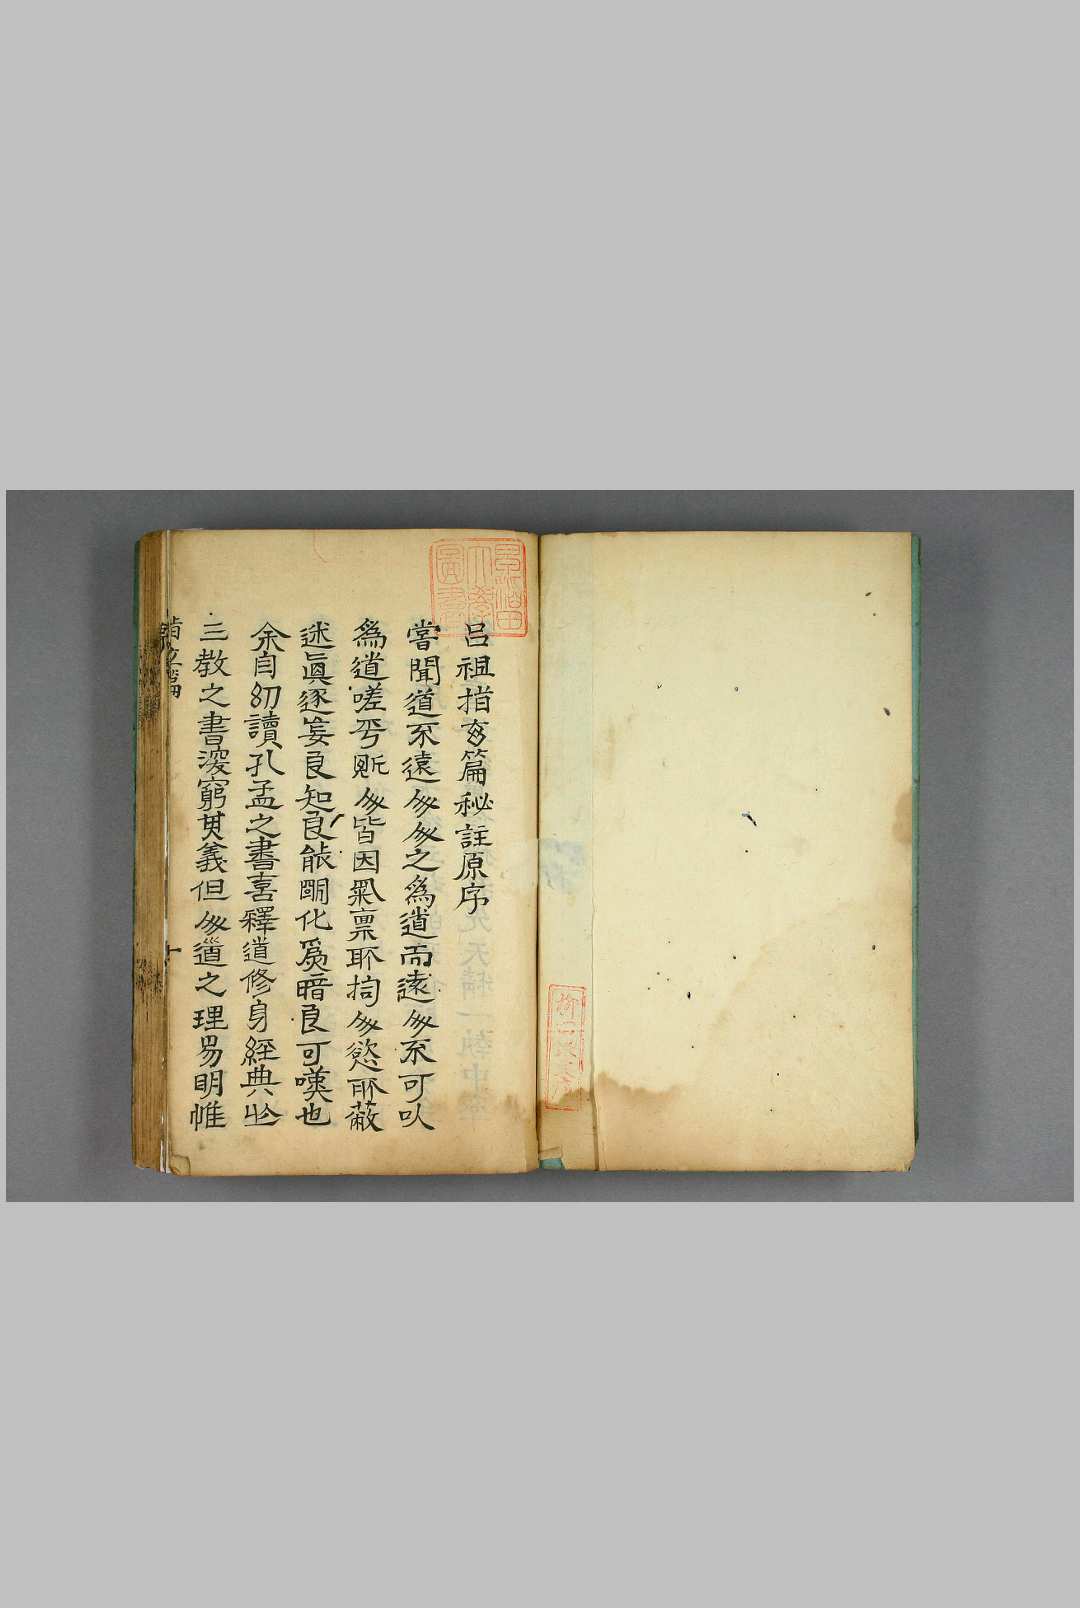 早稲田
大學
圖書
呂祖指玄篇秘註原序
嘗聞道不遠人人之爲道而遠人不可以
爲道嗟乎斯人皆因氣稟所拘人慾所蔽
迷眞逐妄良知良能朙化爲暗良可嘆也
余自幼讀孔孟之書喜釋道修身經典於
三教之書深窮其義但人道之理易明惟
指玄篇
柳田泉文庫